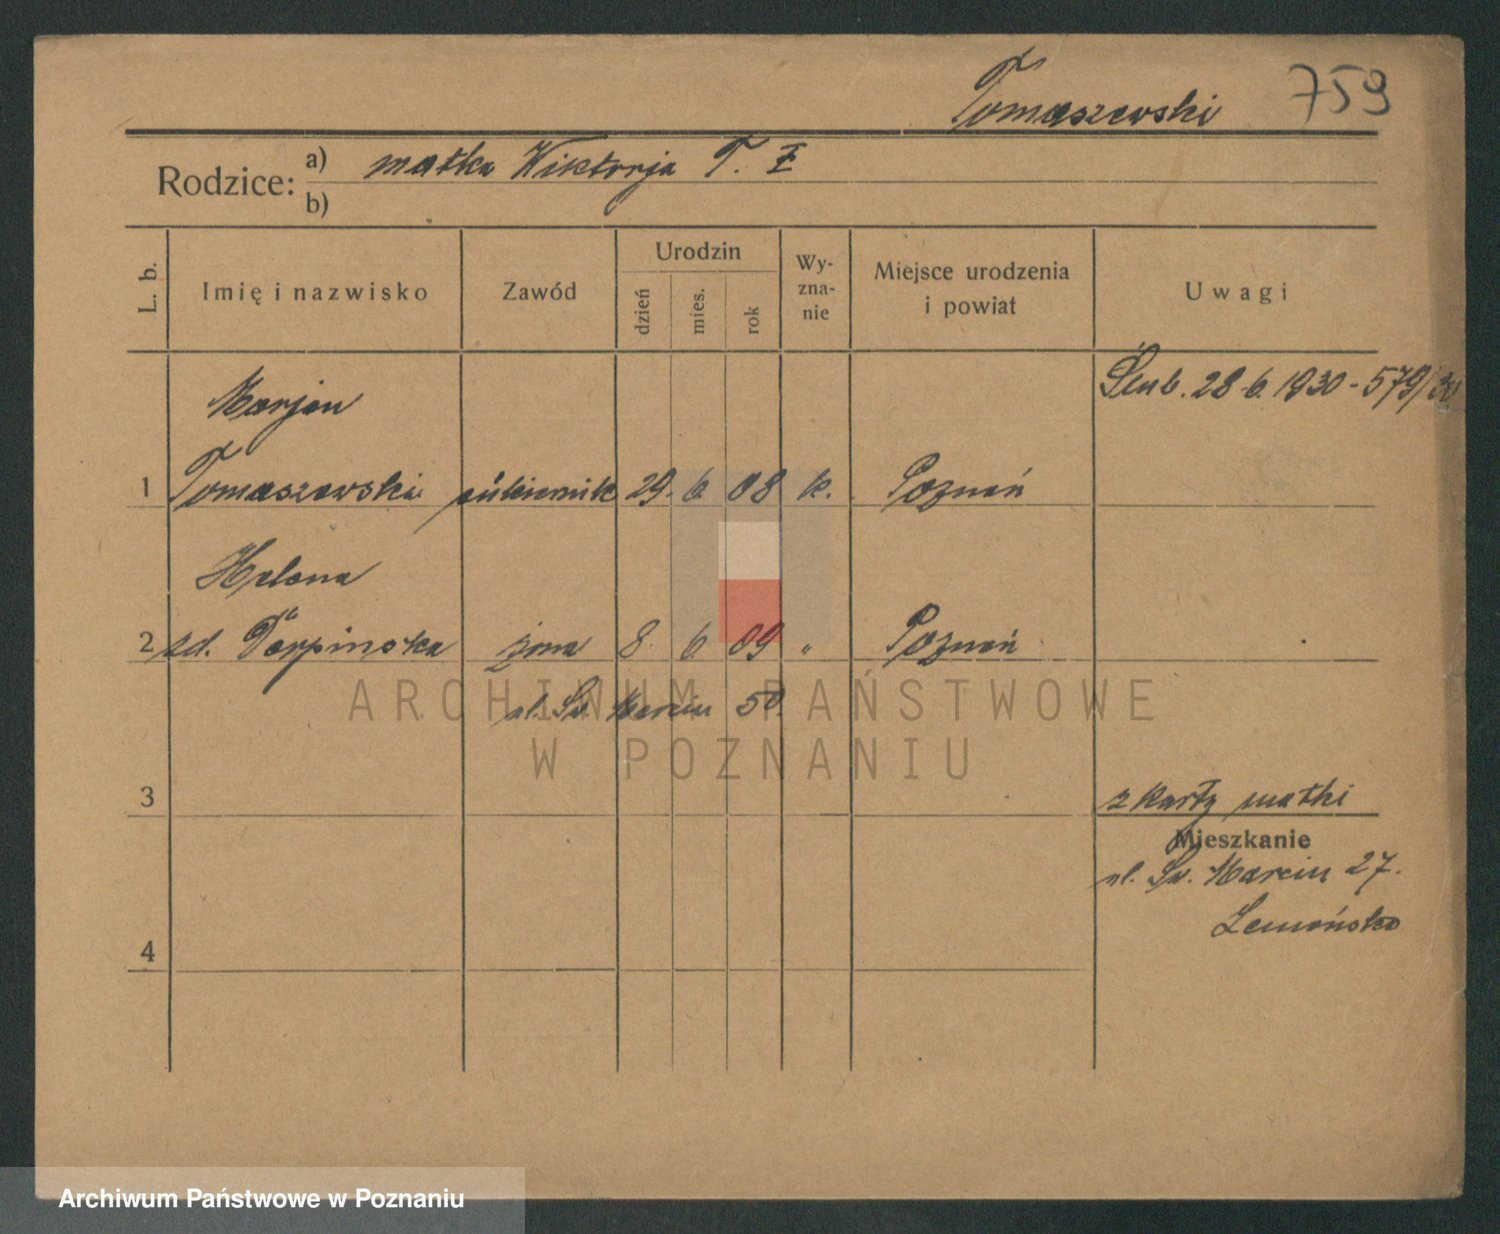 Tomaszewski 759
Rodzice: a) matka Wiktorja T. Ż
b)
L. b. Imię i nazwisko Zawód Urodzin dzień mies. rok Wy-
zna-
nie Miejsce urodzenia
i powiat Uwagi
Ślub. 28.6.1930 - 579/30
Marjan
1 Tomaszewski cukiernik 29. 6. 08 k. Poznań
Helena
2 zd. żona 8. 6. 09 " Poznań
ul. Św. Marcin 50.
ARCHIWUM PAŃSTWOWE
W POZNANIU
3 z karty matki
Mieszkanie
ul. Św. Marcin 27.
4
Archiwum Państwowe w Poznaniu